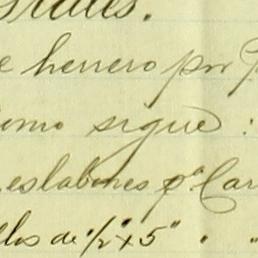 e herrero por
omo sigue:
eslabones pª Car
llos de 1/2"x5" " "